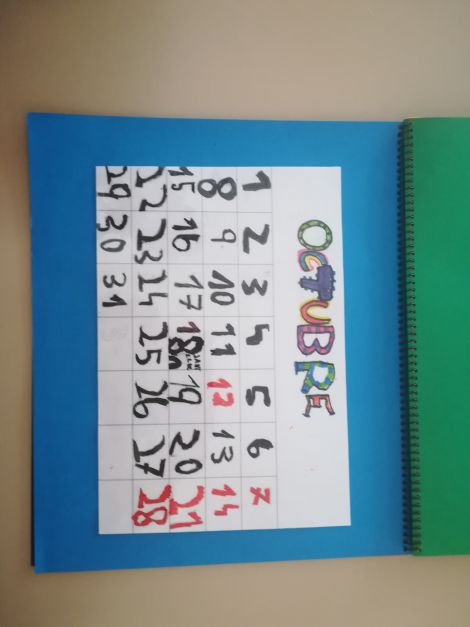 OCTUBRE
1 2 3 4 5 6 7
8 9 10 11 12 13 14
15 16 17 18 19 20 21
22 23 24 25 26 27 28
29 30 31